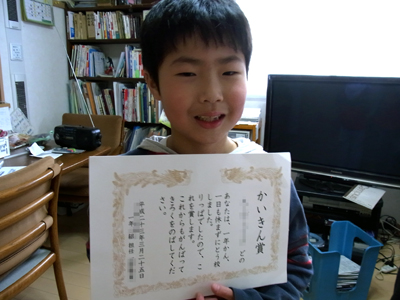 かいきん賞
どの
あなたは、一年かん、
一日も休まずにとう校
しました。
りっぱでしたので、こ
れを賞します。
これからもがんばって
きろくをのばしてくだ
さい。
平成二十三年三月二十五日